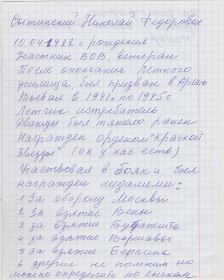 Сытинский Николай Федорович
10.04.1922 г рождения
Участник ВОВ, ветеран
После окончания летного
училища, был призван в Армию
Воевал в 1941г по 1945г
Летчик истребитель
Дважды был тяжело ранен
Награжден орденом "Красной
Звезды" (он у нас есть)
Участвовал в боях и был
награжден медалями:
1 За оборону Москвы
2 За взятие Вены
3 За взятие Будапешта
4 За взятие Варшавы
5 За взятие Берлина
о других не помним но
можно определить по